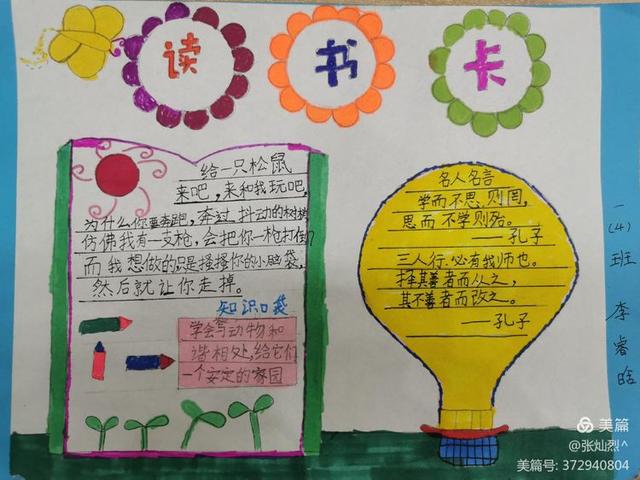 读书卡
给一只松鼠
来吧,来和我玩吧,
为什么你要奔跑,穿过抖动的树梢
仿佛我有一支枪,会把你一枪打倒?
而我想做的只是搔搔你的小脑袋,
然后就让你走掉。
知识口袋
学会与动物和
谐相处,给它们
一个安定的家园
名人名言
学而不思,则罔,
思而不学则殆。
——孔子
三人行,必有我师也。
择其善者而从之,
其不善者而改之。
——孔子
一(4)班 李睿晗
美篇
@张灿烈^
美篇号: 372940804